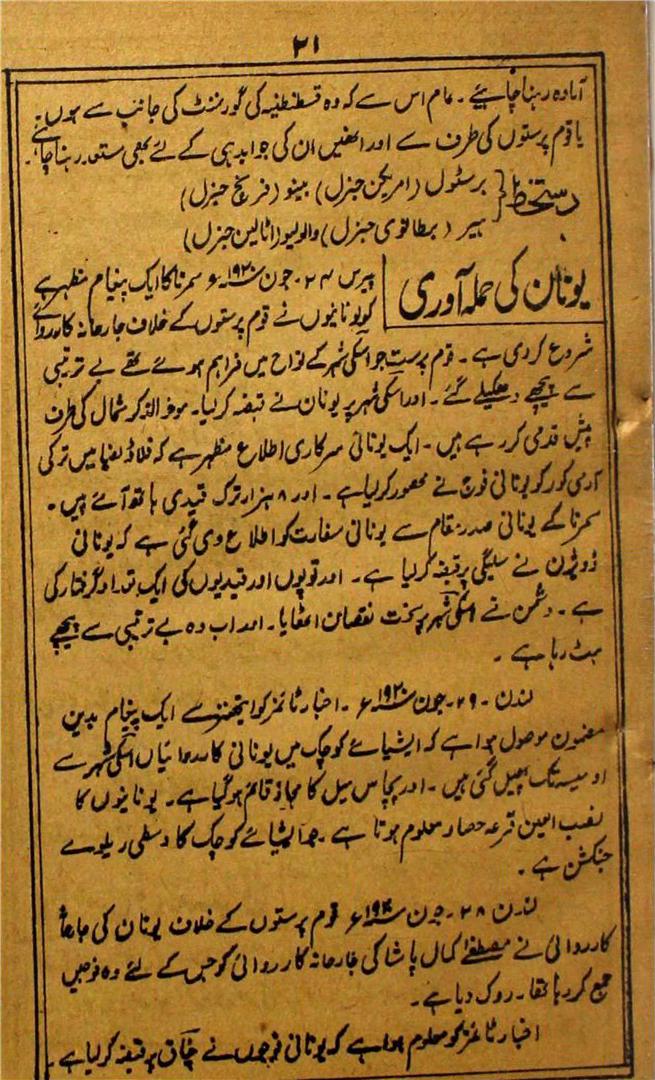 ۲۱
آمادہ رہنا چاہیئے۔ عام اس سے کہ وہ قسطنطنیہ کی گورنمنٹ کی جانب سے ہوں
یا قوم پرستوں کی طرف سے اور انھیں ان کی جوابدہی کے لئے بھی مستعد رہنا چاہئے۔
دستخط { برسٹول (امریکن جنرل) بینو (فرنچ جنرل)
ہیر (برطانوی جنرل) والویو (اٹالین جنرل)
یونان کی حملہ آوری
پیرس ۲۴۔ جون ۱۹۲۰ء سمرنا کا ایک پیغام مظہر ہے
کہ یونانیوں نے قوم پرستوں کے خلاف جارحانہ کارروائی
شروع کردی ہے۔ قوم پرست جو اسکی شہر کے نواح میں فراہم ہوئے تھے بے ترتیبی
سے پیچھے دھکیلے گئے۔ اور اسکی شہر پر یونان نے قبضہ کرلیا۔ موخر الذکر شمال کی طرف
پیش قدمی کر رہے ہیں۔ ایک یونانی سرکاری اطلاع مظہر ہے کہ فلاڈلفیا میں ترکی
آرمی کور کو یونانی فوج نے محصور کرلیا ہے۔ اور ۸ ہزار ترک قیدی ہاتھ آئے ہیں۔
سمرنا کے یونانی صدر مقام سے یونانی سفارت کو اطلاع دی گئی ہے کہ یونانی
ڈویژن نے سلیگی پر قبضہ کرلیا ہے۔ اور توپوں اور قیدیوں کی ایک تعداد گرفتار کی
ہے۔ دشمن نے اسکی شہر پر سخت نقصان اٹھایا۔ اور اب وہ بے ترتیبی سے پیچھے
ہٹ رہا ہے۔
لندن۔ ۲۹۔ جون ۱۹۲۰ء۔ اخبار ٹائمز کو ایتھنز سے ایک پیغام بدین
مضمون موصول ہوا ہے کہ ایشیائے کوچک میں یونانی کارروائیاں اسکی شہر سے
اومیسہ تک پھیل گئی ہیں۔ اور پچاس میل کا محاذ قائم ہوگیا ہے۔ یونانیوں کا
نصب العین قرعہ حصار معلوم ہوتا ہے۔ جو ایشیائے کوچک کا وسطی ریلوے
جنکشن ہے۔
لندن ۲۸۔ جون ۱۹۲۰ء قوم پرستوں کے خلاف یونان کی جارحانہ
کارروائی نے مصطفےٰ کمال پاشا کی جارحانہ کارروائی کو جس کے لئے وہ فوجیں
جمع کر رہا تھا۔ روک دیا ہے۔
اخبار ٹائمز کو معلوم ہوا ہے کہ یونانی فوجوں نے چناق پر قبضہ کرلیا ہے۔